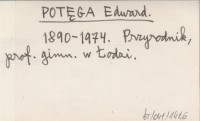 POTĘGA Edward.
1890-1974. Przyrodnik,
prof. gimn. w Łodzi.